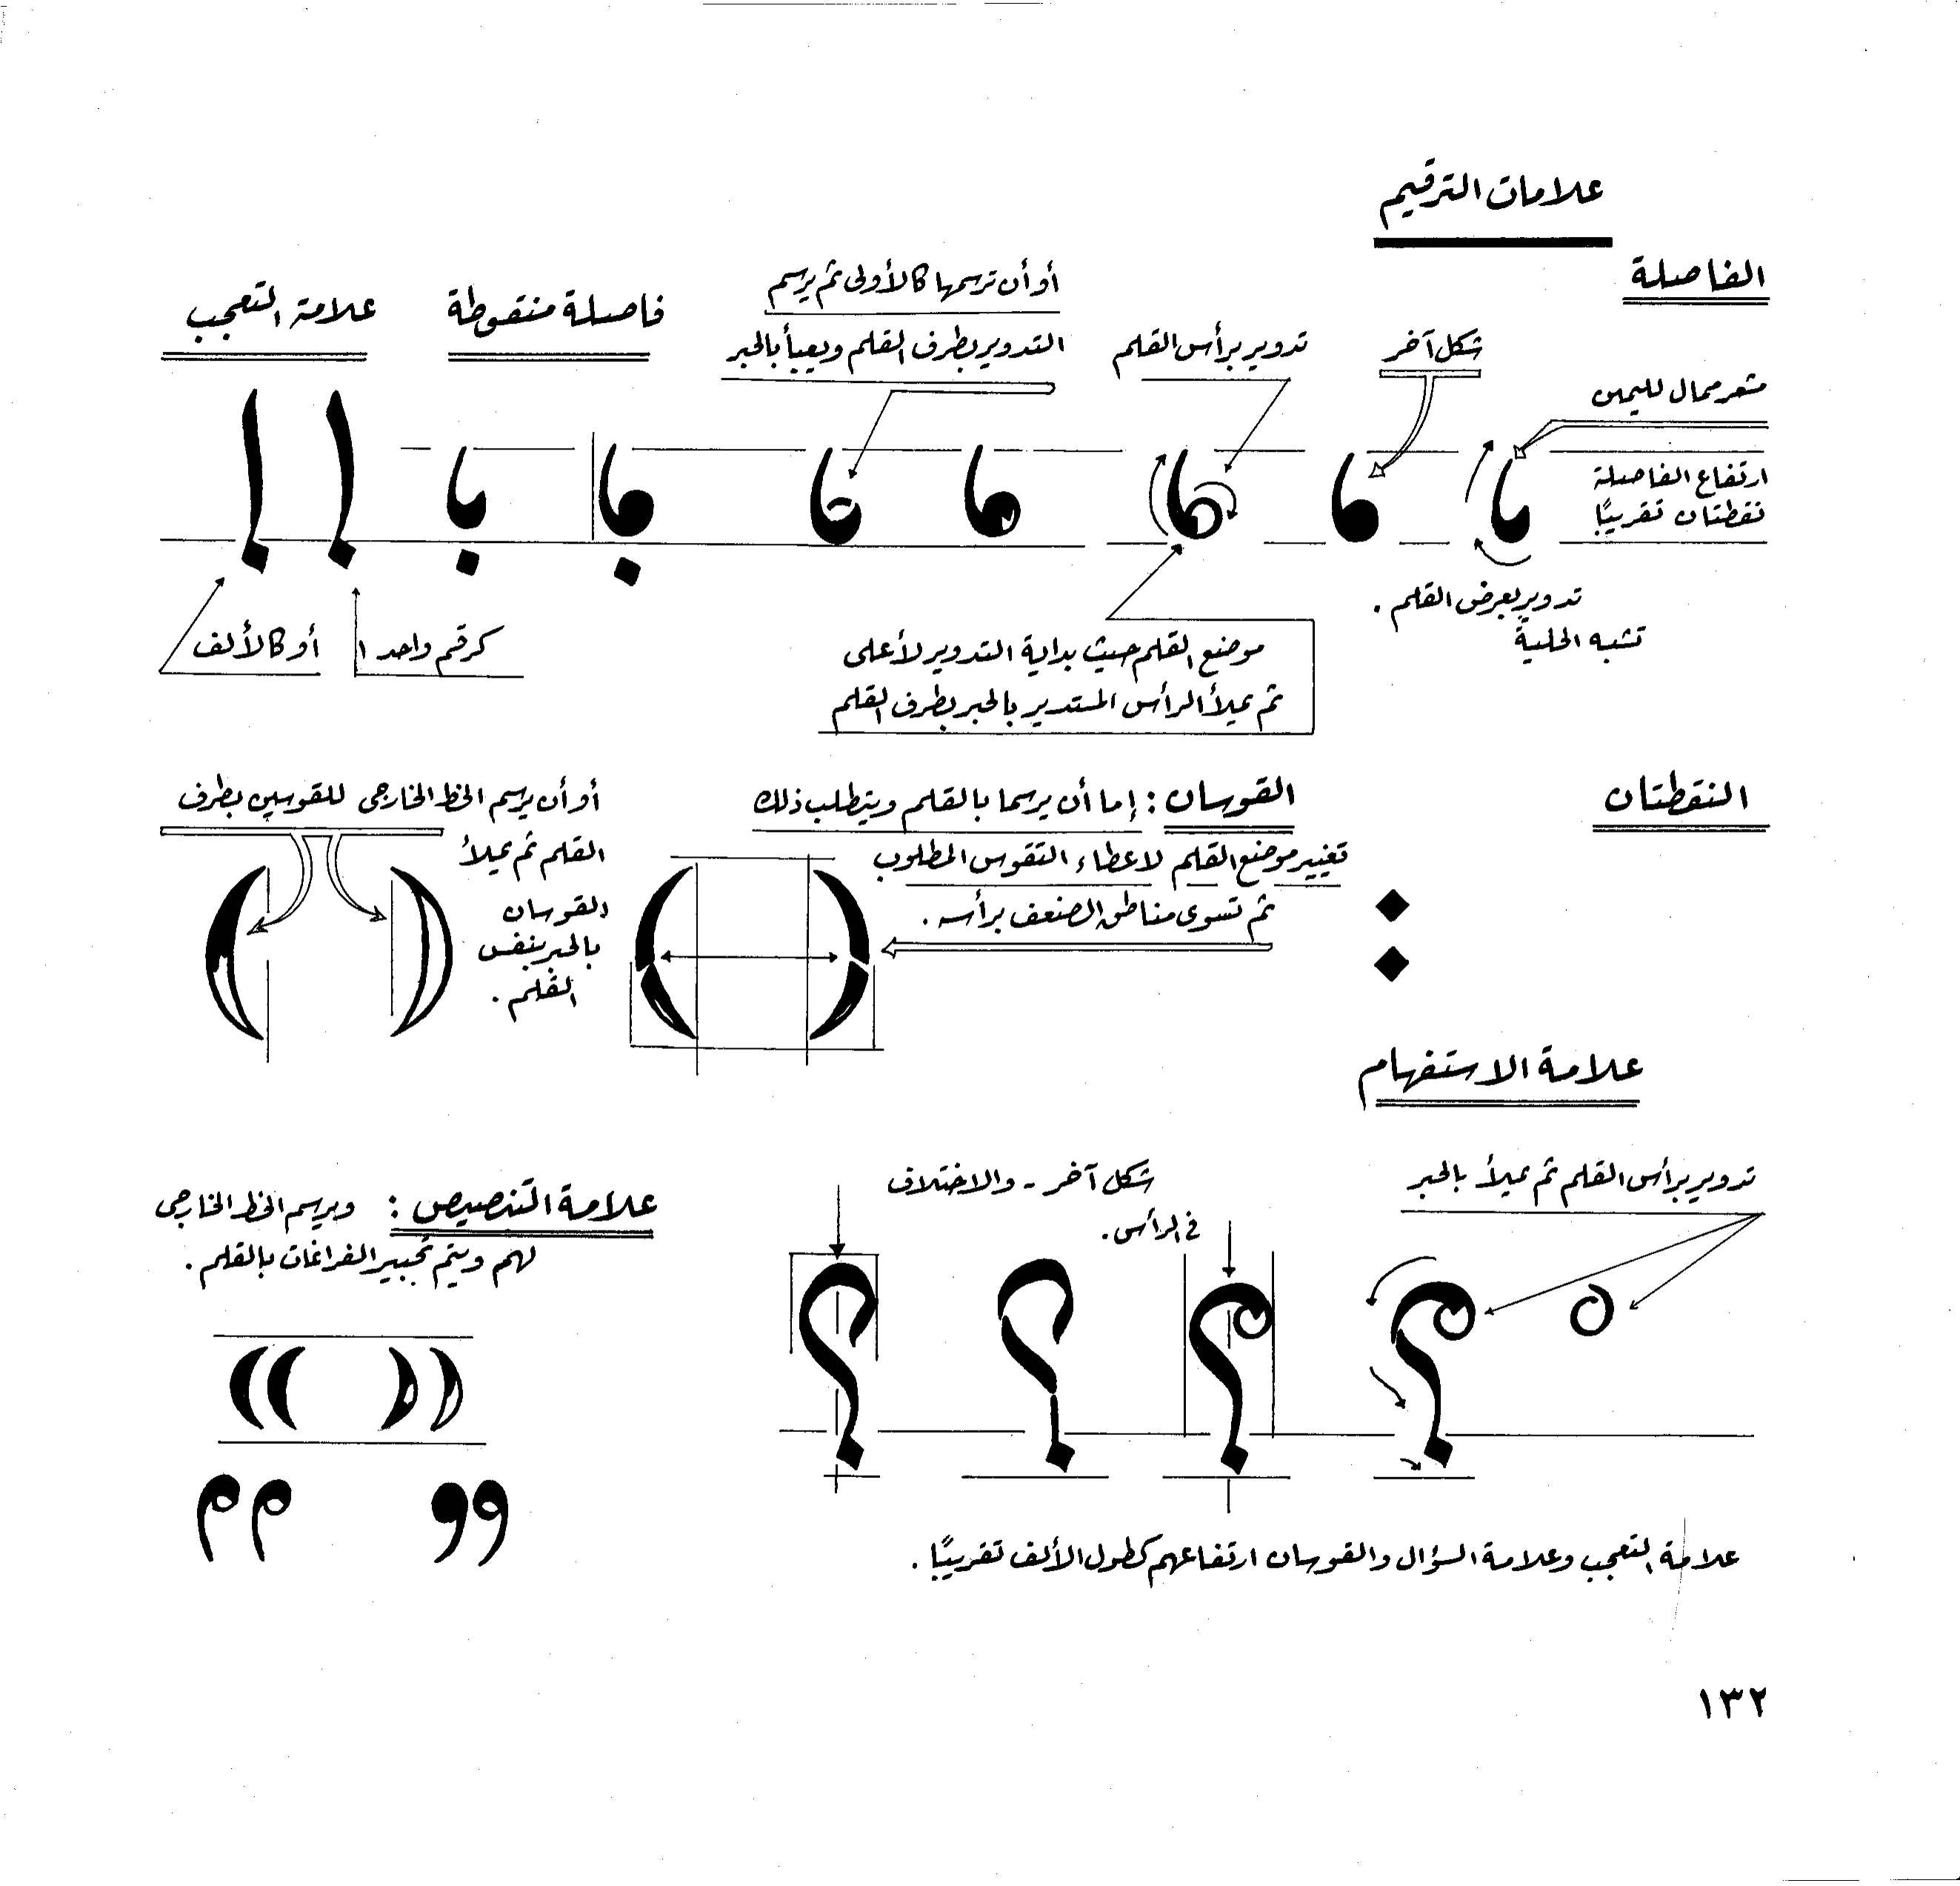 علامات الترقيم
الفاصلة
شكل آخر
تدوير برأس القلم
أو أن ترسمها كالأولى ثم يرسم
التدوير بطرف القلم ويعبأ بالحبر
فاصلة منقوطة
علامة التعجب
مشعر ممال لليمين
ارتفاع الفاصلة
نقطتان تقريبًا
تدوير بعرض القلم .
تشبه الحلية
موضع القلم حيث بداية التدوير لأعلى
ثم يملأ الرأس المستدير بالحبر بطرف القلم
كرقم واحد ١
أو كالألف
النقطتان
القوسان : إما أن يرسما بالقلم ويتطلب ذلك
تغيير موضع القلم لاعطاء التقوس المطلوب
ثم تسوى مناطق الضعف برأسه .
أو أن يرسم الخط الخارجي للقوسين بطرف
القلم ثم يملأ
القوسان
بالحبر بنفس
القلم .
علامة الاستفهام
تدوير برأس القلم ثم يملأ بالحبر
شكل آخر - والاختلاف
في الرأس .
علامة التنصيص : ويرسم الخط الخارجي
لهم ويتم تحبير الفراغات بالقلم .
علامة التعجب وعلامة السؤال والقوسان ارتفاعهم كطول الألف تقريبًا .
١٣٢